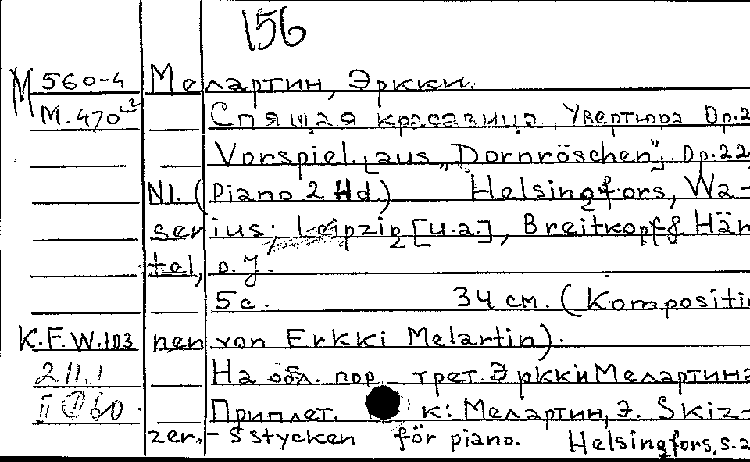 156
М 560-4 Мелартин, Эркки.
М.470 Спящая красавица. Увертюра Op.2
Vorspiel [aus „Dornröschen"], Op.22,
N1. (Piano 2 Hd.) Helsingfors, Wa-
serius; Leipzig [u.a.], Breitkopf & Här
tel, o.J.
5 с. 34 см. (Kompositi
K.F.W.103 nen von Erkki Melartin).
2.11.1 На обл. пор трет. Эркки Мелартина
Приплет. к: Мелартин, Э. Skiz-
zer. - 5 stycken för piano. Helsingfors, s.a